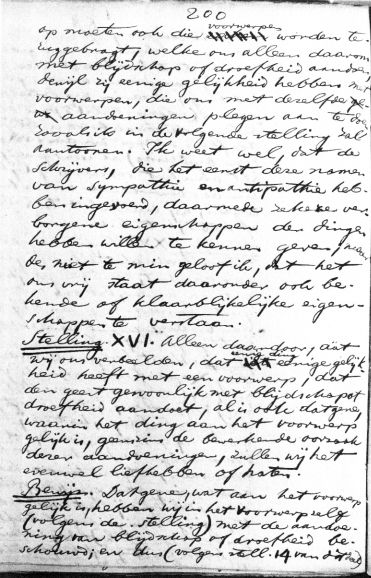 200
voorwerpen
op moeten ook die worden te-
ruggebragt, welke ons alleen daarom
met blijdschap of droefheid aandoen,
dewijl zij eenige gelijkheid hebben met
voorwerpen, die ons met dezelfde
aandoeningen plegen aan te doen
zooals ik in de volgende stelling zal
aantoonen. Ik weet wel, dat de
schrijvers, die het eerst deze namen
van sympathie en antipathie heb-
ben ingevoerd, daarmede zekere ver-
borgene eigenschappen der dingen
hebben willen te kennen geven; maar
des niet te min geloof ik, dat het
ons vrij staat daaronder ook be-
kende of klaarblijkelijke eigen-
schappen te verstaan.
Stelling XVI. Alleen daardoor, dat
wij ons verbeelden, dat eenig ding eenige gelijk-
heid heeft met een voorwerp, dat
den geest gewoonlijk met blijdschap of
droefheid aandoet, al is ook datgene,
waarin het ding aan het voorwerp
gelijk is, geenszins de bewerkende oorzaak
dezer aandoeningen, zullen wij het
evenwel liefhebben of haten.
Bewijs. Datgene, wat aan het voorwerp
gelijk is, hebben wij in het voorwerp zelf
(volgens de stelling) met de aandoe-
ning van blijdschap of droefheid be-
schouwd; en dus (volgens stell. 14 van dit deel)